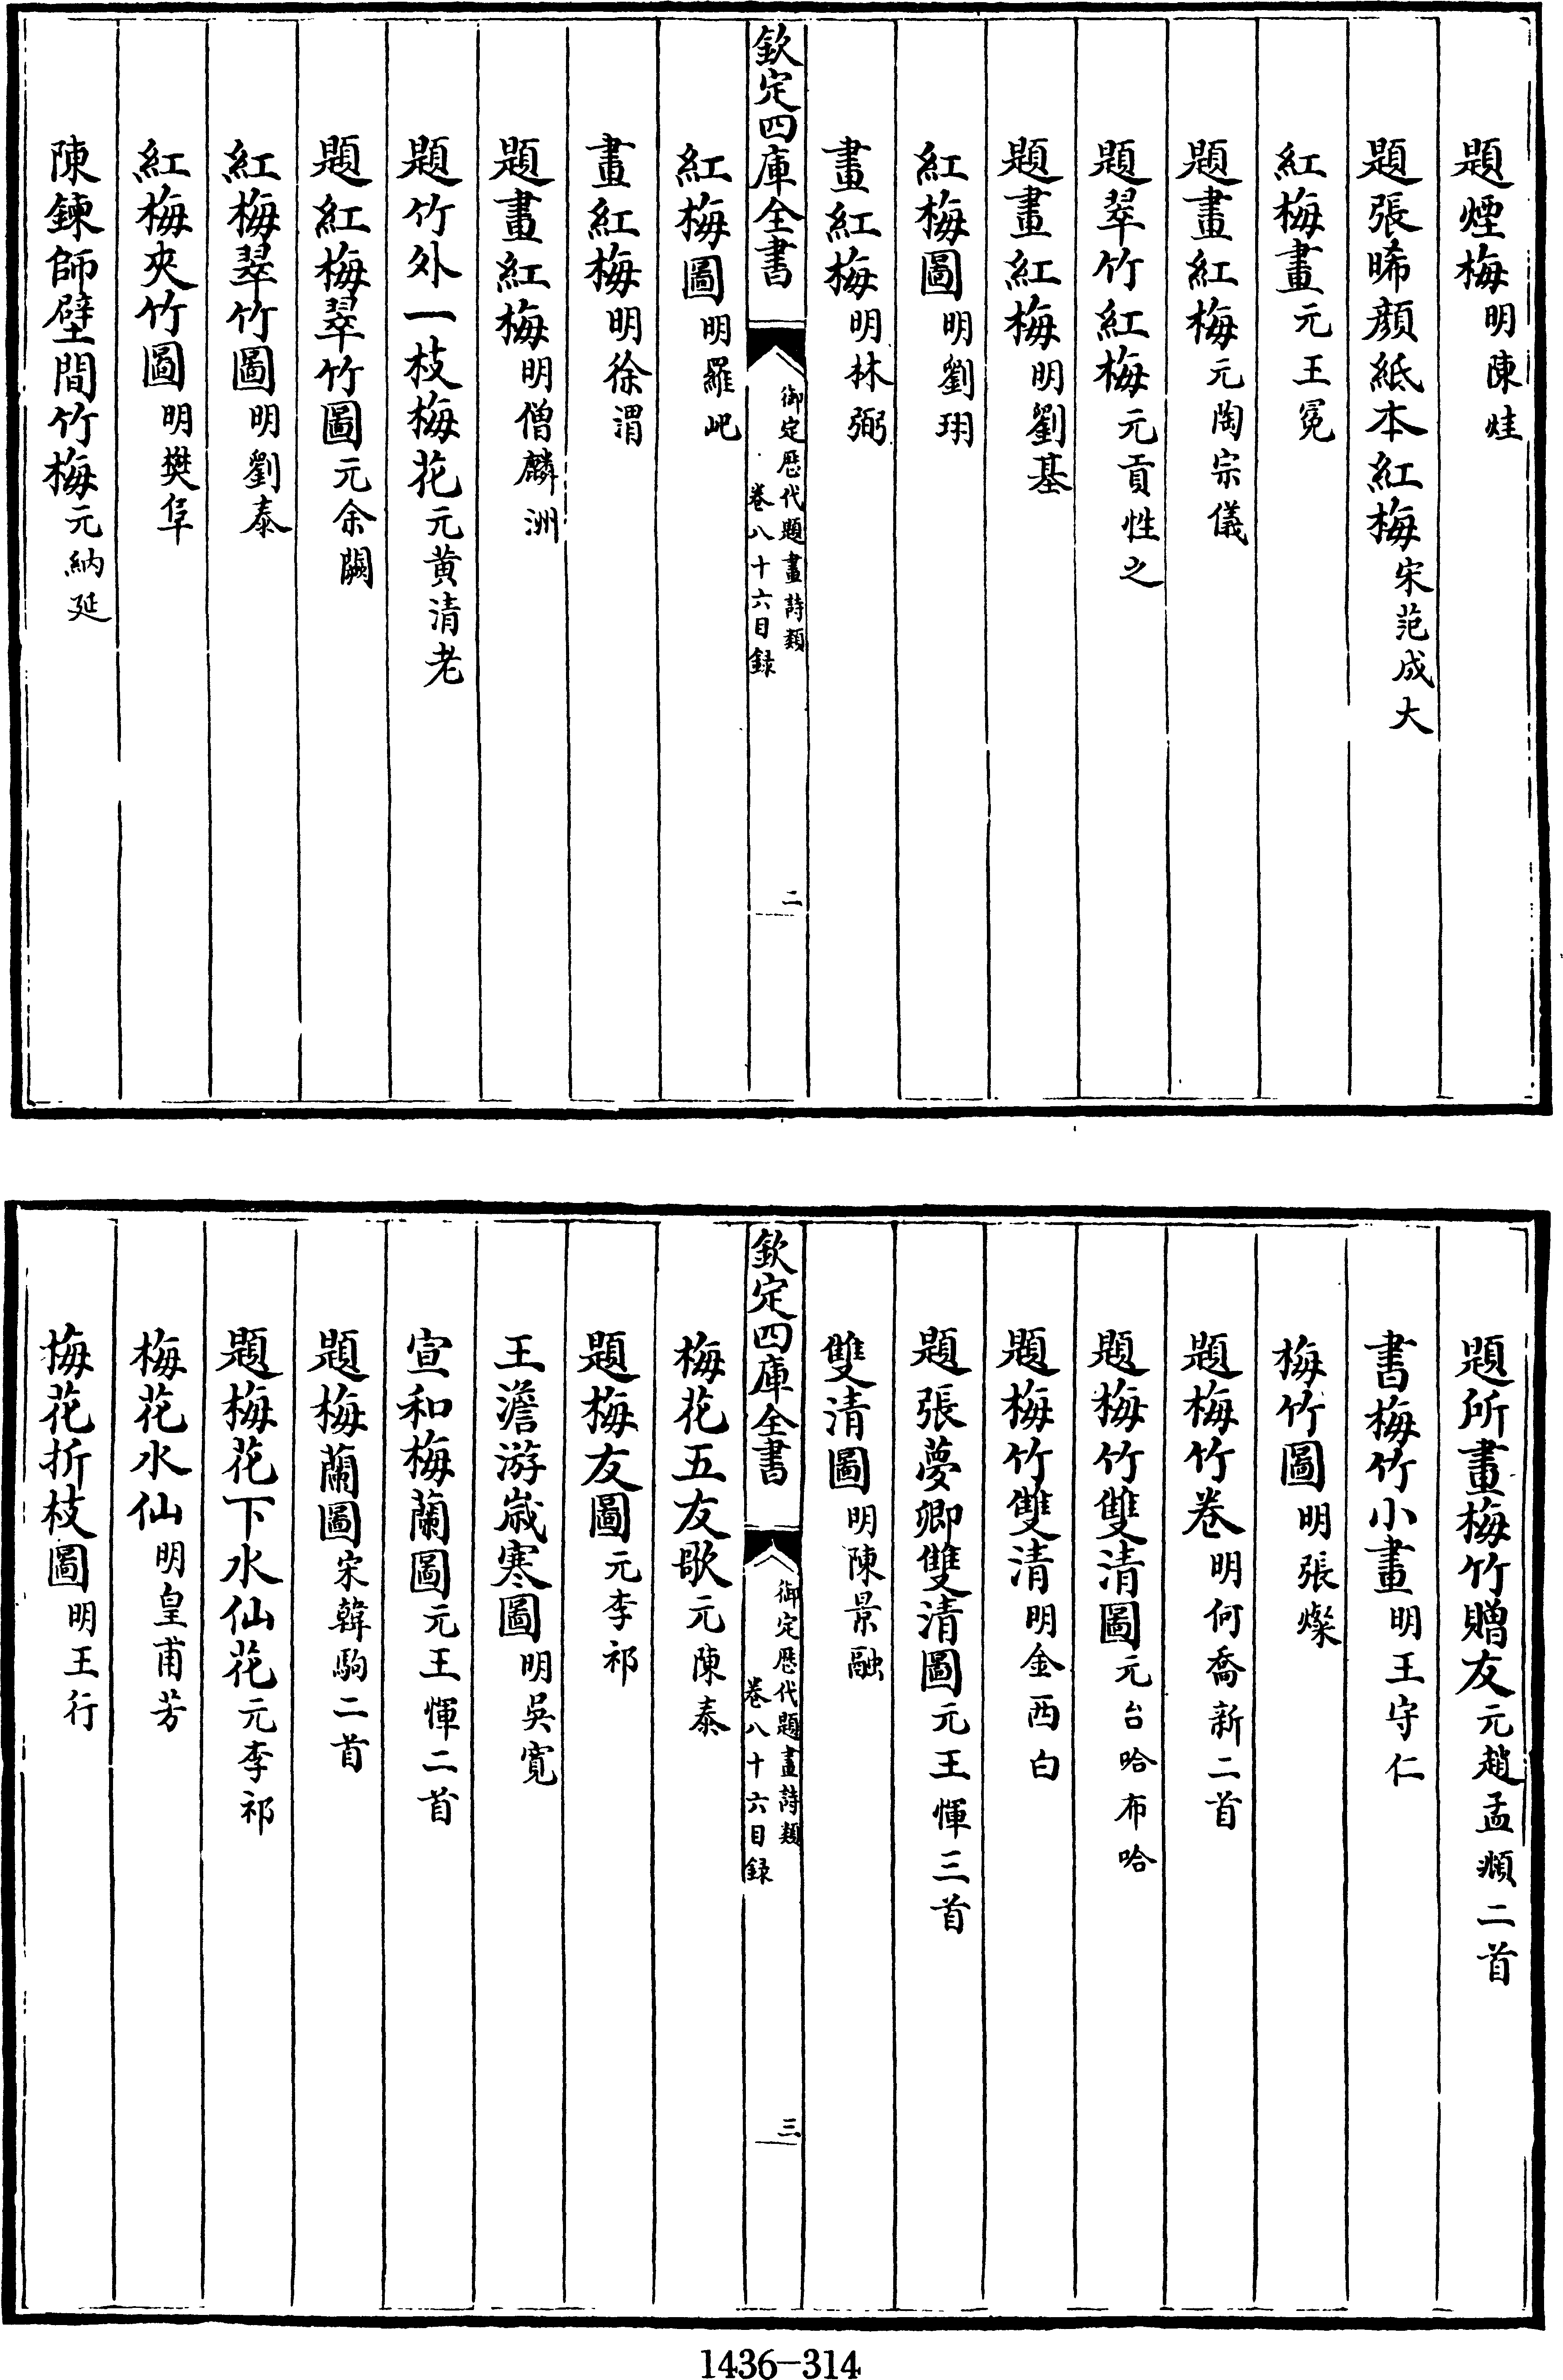 題煙梅明陳烓
題張晞顔紙本紅梅宋范成大
紅梅畫元王冕
題畫紅梅元陶宗儀
題翠竹紅梅元貢性之
題畫紅梅明劉基
紅梅圖明劉珝
畫紅梅明林弼
欽定四庫全書
御定歴代題畫詩類
卷八十六目録
二
紅梅圖明羅玘
畫紅梅明徐渭
題畫紅梅明僧麟洲
題竹外一枝梅花元黄清老
題紅梅翠竹圖元余闕
紅梅翠竹圖明劉泰
紅梅夾竹圖明樊阜
陳鍊師壁間竹梅元納延
題所畫梅竹贈友元趙孟頫二首
書梅竹小畫明王守仁
梅竹圖明張燦
題梅竹卷明何喬新二首
題梅竹雙清圖元台哈布哈
題梅竹雙清明金西白
題張夢卿雙清圖元王惲三首
雙清圖明陳景融
欽定四庫全書
御定歴代題畫詩類
卷八十六目録
三
梅花五友歌元陳泰
題梅友圖元李祁
王澹游嵗寒圖明吳寛
宣和梅蘭圖元王惲二首
題梅蘭圖宋韓駒二首
題梅花下水仙花元李祁
梅花水仙明皇甫芳
梅花折枝圖明王行
1436-314